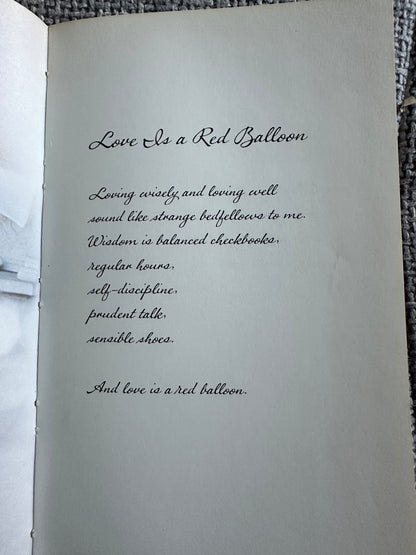 Love Is a Red Balloon
Loving wisely and loving well
sound like strange bedfellows to me.
Wisdom is balanced checkbooks,
regular hours,
self-discipline,
prudent talk,
sensible shoes.
And love is a red balloon.